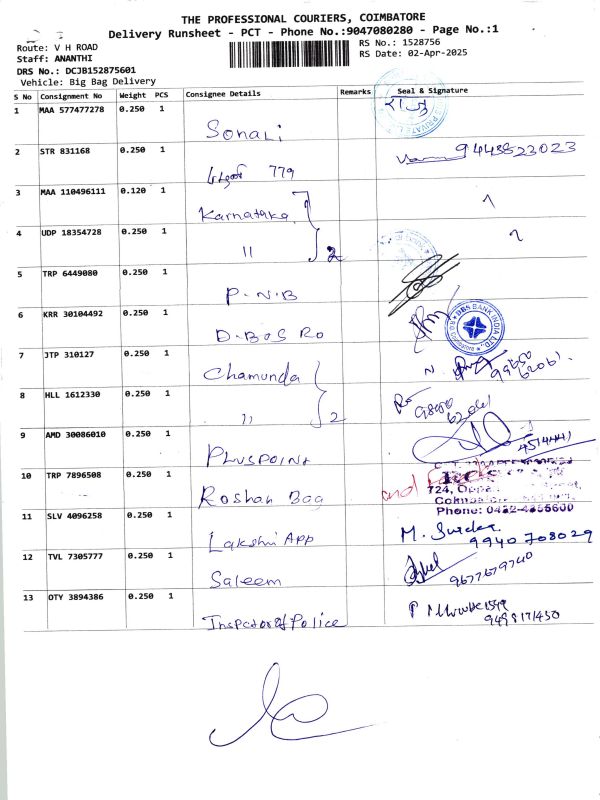 THE PROFESSIONAL COURIERS, COIMBATORE
Delivery Runsheet - PCT - Phone No.:9047080280 - Page No.:1
Route: V H ROAD
RS No.: 1528756
Staff: ANANTHI
RS Date: 02-Apr-2025
DRS No.: DCJB152875601
Vehicle: Big Bag Delivery
S No Consignment No Weight PCS Consignee Details Remarks Seal & Signature
1 MAA 577477278 0.250 1 Sonali राजु
2 STR 831168 0.250 1 779 9443823023
3 MAA 110496111 0.120 1 Karnataka
4 UDP 18354728 0.250 1 11 2
5 TRP 6449080 0.250 1 P.N.B
6 KRR 30104492 0.250 1 D.BOS RO DBS BANK INDIA LTD.
7 JTP 310127 0.250 1 Chamunda
8 HLL 1612330 0.250 1 11 2
9 AMD 30086010 0.250 1 PLUSPOINT
10 TRP 7896508 0.250 1 Roshan Bag
724, Oppa
Phone: 0422-4355600
11 SLV 4096258 0.250 1 Lakshmi App M. Sundar 9940708029
12 TVL 7305777 0.250 1 Saleem 9677679740
13 OTY 3894386 0.250 1 Inspector of Police